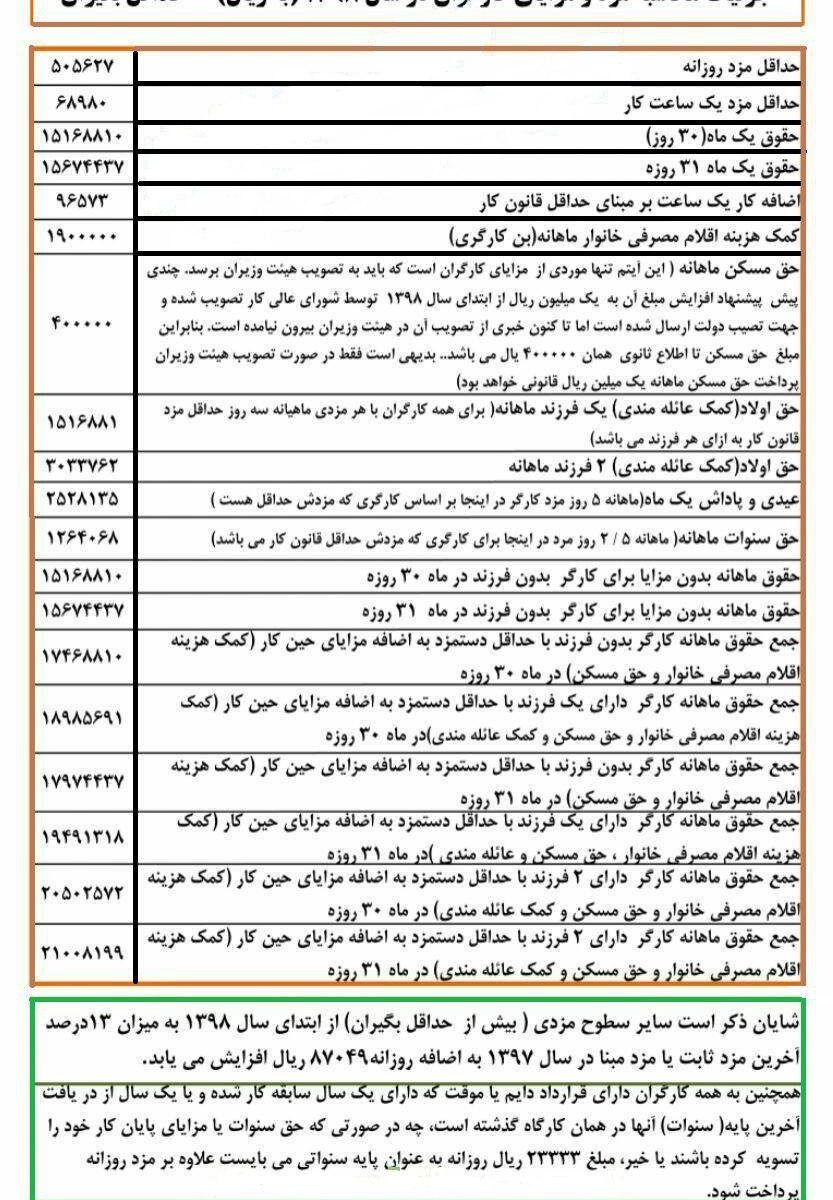 حداقل مزد روزانه ۵۰۵۶۲۷
حداقل مزد یک ساعت کار ۶۸۹۸۰
حقوق یک ماه(۳۰ روز) ۱۵۱۶۸۸۱۰
حقوق یک ماه ۳۱ روزه ۱۵۶۷۴۴۳۷
اضافه کار یک ساعت بر مبنای حداقل قانون کار ۹۶۵۷۳
کمک هزینه اقلام مصرفی خانوار ماهانه(بن کارگری) ۱۹۰۰۰۰۰
حق مسکن ماهانه ( این آیتم تنها موردی از مزایای کارگران است که باید به تصویب هیئت وزیران برسد. چندی
پیش پیشنهاد افزایش مبلغ آن به یک میلیون ریال از ابتدای سال ۱۳۹۸ توسط شورای عالی کار تصویب شده و
جهت تصیب دولت ارسال شده است اما تا کنون خبری از تصویب آن در هیئت وزیران بیرون نیامده است. بنابراین
مبلغ حق مسکن تا اطلاع ثانوی همان ۴۰۰۰۰۰ یال می باشد.. بدیهی است فقط در صورت تصویب هیئت وزیران
پرداخت حق مسکن ماهانه یک میلین ریال قانونی خواهد بود)
۴۰۰۰۰۰
حق اولاد(کمک عائله مندی) یک فرزند ماهانه( برای همه کارگران با هر مزدی ماهیانه سه روز حداقل مزد
قانون کار به ازای هر فرزند می باشد)
۱۵۱۶۸۸۱
حق اولاد(کمک عائله مندی) ۲ فرزند ماهانه ۳۰۳۳۷۶۲
عیدی و پاداش یک ماه(ماهانه ۵ روز مزد کارگر در اینجا بر اساس کارگری که مزدش حداقل هست ) ۲۵۲۸۱۳۵
حق سنوات ماهانه( ماهانه ۵ / ۲ روز مرد در اینجا برای کارگری که مزدش حداقل قانون کار می باشد) ۱۲۶۴۰۶۸
حقوق ماهانه بدون مزایا برای کارگر بدون فرزند در ماه ۳۰ روزه ۱۵۱۶۸۸۱۰
حقوق ماهانه بدون مزایا برای کارگر بدون فرزند در ماه ۳۱ روزه ۱۵۶۷۴۴۳۷
جمع حقوق ماهانه کارگر بدون فرزند با حداقل دستمزد به اضافه مزایای حین کار (کمک هزینه
اقلام مصرفی خانوار و حق مسکن) در ماه ۳۰ روزه
۱۷۴۶۸۸۱۰
جمع حقوق ماهانه کارگر دارای یک فرزند با حداقل دستمزد به اضافه مزایای حین کار (کمک
هزینه اقلام مصرفی خانوار و حق مسکن و کمک عائله مندی)در ماه ۳۰ روزه
۱۸۹۸۵۶۹۱
جمع حقوق ماهانه کارگر بدون فرزند با حداقل دستمزد به اضافه مزایای حین کار (کمک هزینه
اقلام مصرفی خانوار و حق مسکن) در ماه ۳۱ روزه
۱۷۹۷۴۴۳۷
جمع حقوق ماهانه کارگر دارای یک فرزند با حداقل دستمزد به اضافه مزایای حین کار (کمک
هزینه اقلام مصرفی خانوار ، حق مسکن و عائله مندی )در ماه ۳۱ روزه
۱۹۴۹۱۳۱۸
جمع حقوق ماهانه کارگر دارای ۲ فرزند با حداقل دستمزد به اضافه مزایای حین کار (کمک هزینه
اقلام مصرفی خانوار و حق مسکن و کمک عائله مندی) در ماه ۳۰ روزه
۲۰۵۰۲۵۷۲
جمع حقوق ماهانه کارگر دارای ۲ فرزند با حداقل دستمزد به اضافه مزایای حین کار (کمک هزینه
اقلام مصرفی خانوار و حق مسکن و کمک عائله مندی) در ماه ۳۱ روزه
۲۱۰۰۸۱۹۹
شایان ذکر است سایر سطوح مزدی ( بیش از حداقل بگیران) از ابتدای سال ۱۳۹۸ به میزان ۱۳درصد
آخرین مزد ثابت یا مزد مبنا در سال ۱۳۹۷ به اضافه روزانه۸۷۰۴۹ ریال افزایش می یابد.
همچنین به همه کارگران دارای قرارداد دایم یا موقت که دارای یک سال سابقه کار شده و یا یک سال از در یافت
آخرین پایه( سنوات) آنها در همان کارگاه گذشته است، چه در صورتی که حق سنوات یا مزایای پایان کار خود را
تسویه کرده باشند یا خیر، مبلغ ۲۳۳۳۳ ریال روزانه به عنوان پایه سنواتی می بایست علاوه بر مزد روزانه
پرداخت شود.